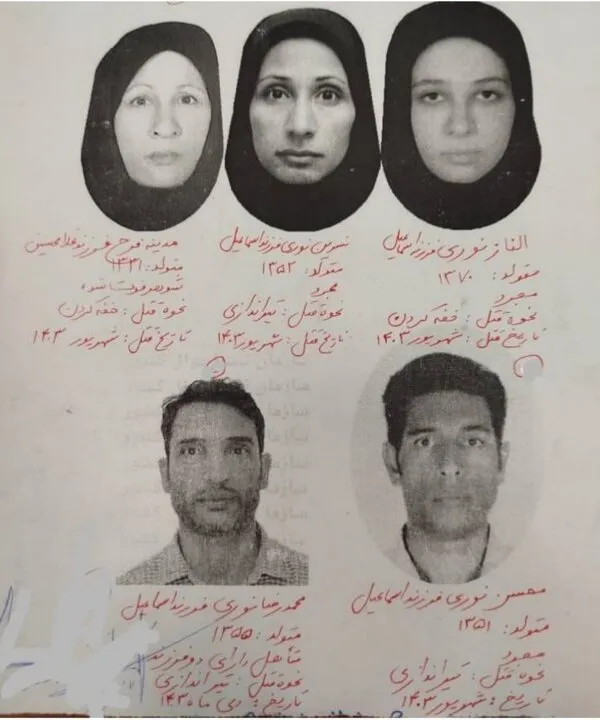 الناز نوری فرزند اسماعیل
متولد: ۱۳۷۰
مجرد
نحوهٔ قتل: خفه کردن
تاریخ قتل: شهریور ۱۴۰۳
نسرین نوری فرزند اسماعیل
متولد: ۱۳۵۲
مجرد
نحوهٔ قتل: تیراندازی
تاریخ قتل: شهریور ۱۴۰۳
مدینه فرخ فرزند غلامحسین
متولد: ۱۳۳۱
شوهر فوت شده
نحوهٔ قتل: خفه کردن
تاریخ قتل: شهریور ۱۴۰۳
محسن نوری فرزند اسماعیل
متولد: ۱۳۵۱
مجرد
نحوهٔ قتل: تیراندازی
تاریخ: شهریور ۱۴۰۳
محمدرضا نوری فرزند اسماعیل
متولد: ۱۳۵۵
متأهل دارای دو فرزند
نحوهٔ قتل: تیراندازی
تاریخ: دی ماه ۱۴۰۳